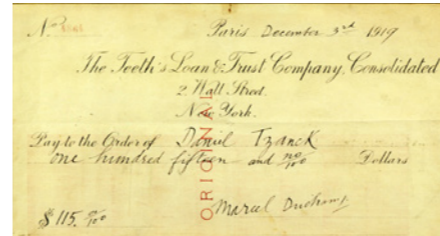 No. Paris December 3rd 1919
The Teeth's Loan & Trust Company, Consolidated
2 Wall Street.
New York.
Pay to the Order of Daniel Tzanck
one hundred fifteen and no/100 Dollars
ORIGINAL
Marcel Duchamp
$115. no/100